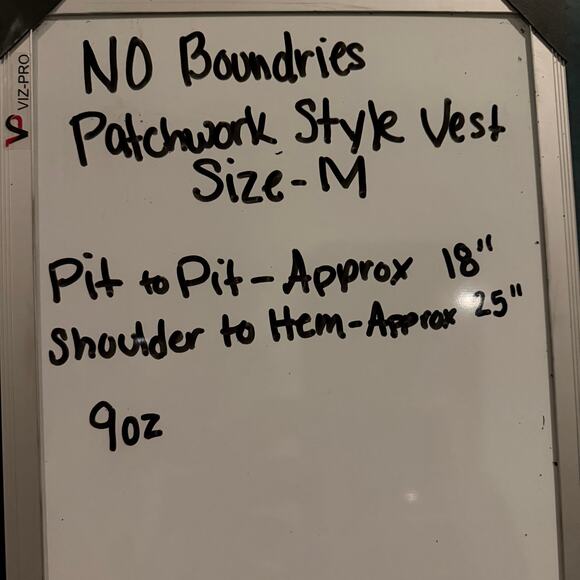 VIZ-PRO
NO Boundries
Patchwork Style Vest
Size-M
Pit to Pit-Approx 18"
Shoulder to Hem-Approx 25"
9oz